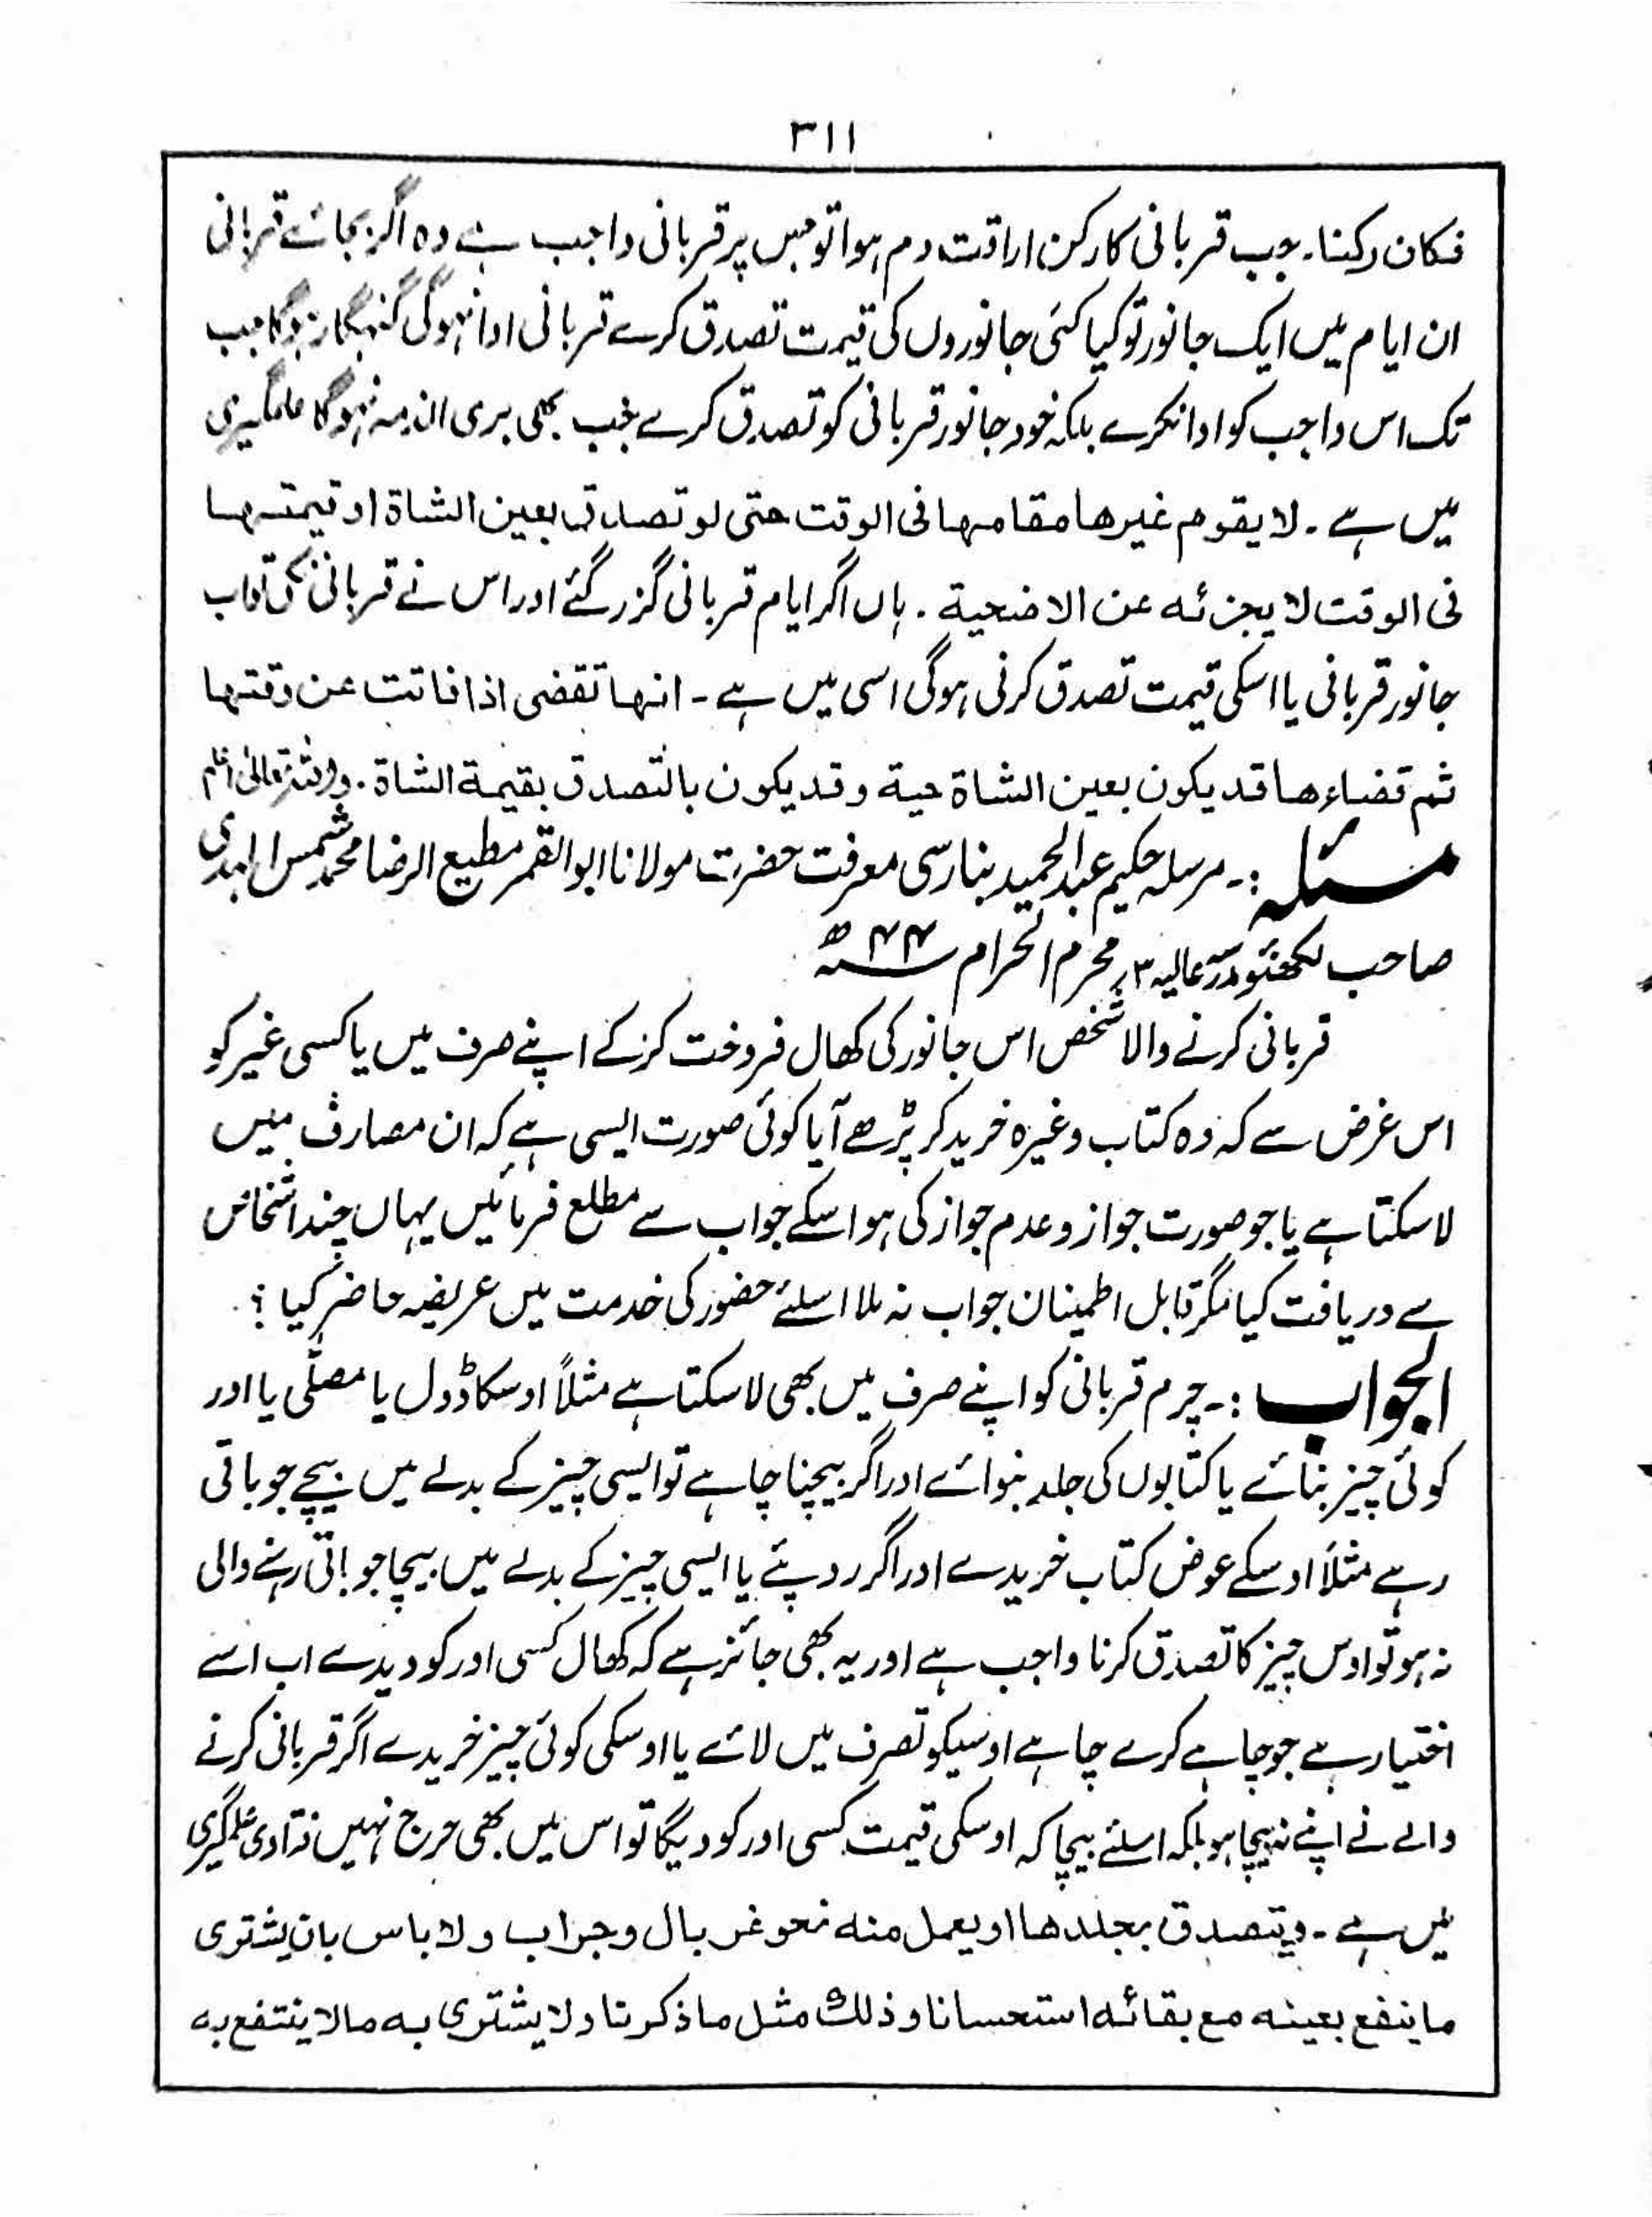 ۳۱۱
فکان رکنا۔ جب قربانی کا رکن اراقت دم ہوا تو جس پر قربانی واجب ہے وہ اگر بجائے قربانی
ان ایام میں ایک جانور تو کیا کئی جانوروں کی قیمت تصدق کرے قربانی ادا نہ ہوگی گنہگار ہوگا جب
تک اس واجب کو ادا نکرے بلکہ خود جانور قربانی کو تصدق کرے جب بھی بری الذمہ نہوگا علمگیری
میں ہے۔ لا یقوم غیرھا مقامہا فی الوقت حتی لو تصدق بعین الشاۃ او قیمتہا
فی الوقت لا یجزئہ عن الاضحیۃ۔ ہاں اگر ایام قربانی گزر گئے اور اس نے قربانی نکی تو اب
جانور قربانی یا اسکی قیمت تصدق کرنی ہوگی اسی میں ہے۔ انہا تقضی اذا فاتت عن وقتہا
ثم قضاءھا قد یکون بعین الشاۃ حیۃ وقد یکون بالتصدق بقیمۃ الشاۃ۔ واللہ تعالیٰ اعلم
مسئلہ :۔ مرسلہ حکیم عبدالحمید بنارسی معرفت حضرت مولانا ابوالقمر مطیع الرضا محمد شمس الہدی
صاحب لکھنؤ مدرسہ عالیہ ۳؍ محرم الحرام سنہ ۴۴ھ
قربانی کرنے والا شخص اس جانور کی کھال فروخت کرکے اپنے صرف میں یا کسی غیر کو
اس غرض سے کہ وہ کتاب وغیرہ خرید کر پڑھے آیا کوئی صورت ایسی ہے کہ ان مصارف میں
لا سکتا ہے یا جو صورت جواز و عدم جواز کی ہو اسکے جواب سے مطلع فرمائیں یہاں چند اشخاص
سے دریافت کیا مگر قابل اطمینان جواب نہ ملا اسلئے حضور کی خدمت میں عریضہ حاضر کیا ؟
الجواب :۔ چرم قربانی کو اپنے صرف میں بھی لا سکتا ہے مثلاً اوسکا ڈول یا مصلّٰی یا اور
کوئی چیز بنائے یا کتابوں کی جلد بنوائے اور اگر بیچنا چاہے تو ایسی چیز کے بدلے میں بیچے جو باقی
رہے مثلاً اوسکے عوض کتاب خریدے اور اگر روپئے یا ایسی چیز کے بدلے میں بیچا جو باقی رہنے والی
نہ ہو تو اوس چیز کا تصدق کرنا واجب ہے اور یہ بھی جائز ہے کہ کھال کسی اور کو دیدے اب اسے
اختیار ہے جو چاہے کرے چاہے اوسیکو تصرف میں لائے یا اوسکی کوئی چیز خریدے اگر قربانی کرنے
والے نے اپنے نہ بیچا ہو بلکہ اسلئے بیچا کہ اوسکی قیمت کسی اور کو دیگا تو اس میں بھی حرج نہیں فتاوی علمگیری
میں ہے۔ ویتصدق بجلدھا او یعمل منہ نحو غربال وجراب ولا باس بان یشتری
ما ینفع بعینہ مع بقائہ استحسانا وذلك مثل ما ذکرنا ولا یشتری بہ مالا ینتفع بہ